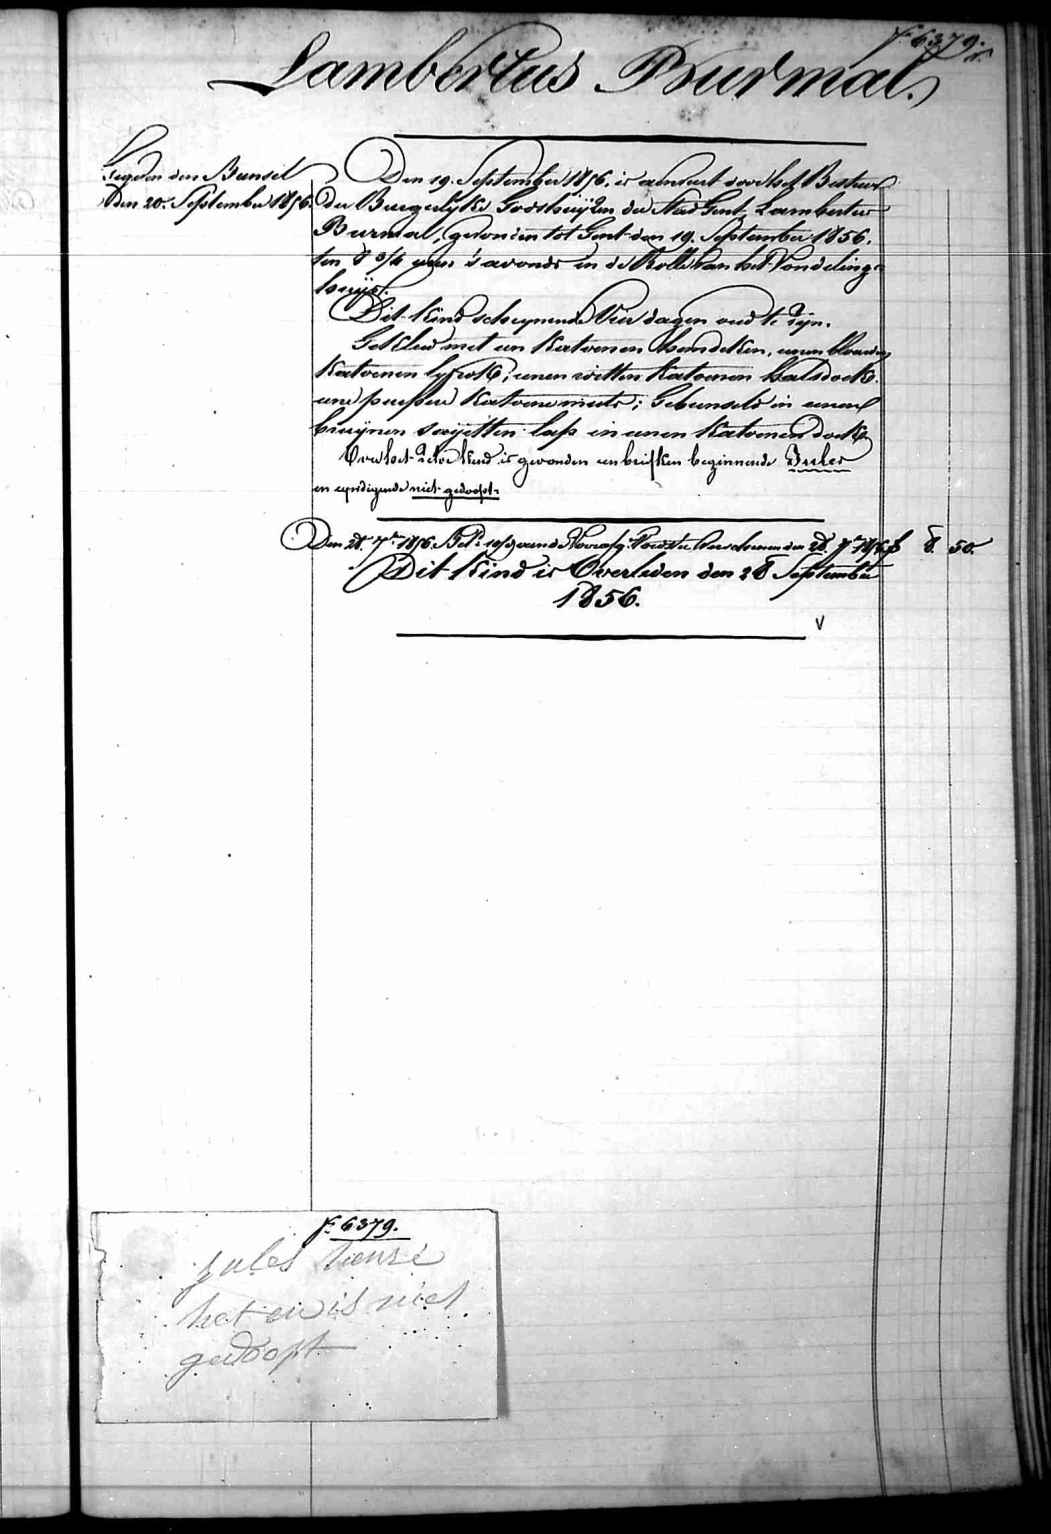 f. 6379.
Lambertus Burmal.
den Bunsel
Den 20. September 1856.
Den 19. September 1856, is aenveert door het Bestuur
der Burgerlyke Godshuyzen der Stad Gent, Lambertus
Burmal, gevonden tot Gent den 19. September 1856.
ten 8 3/4 uren 's avonds in de Rolle van het Vondeling-
huys.
Dit kind scheynende Vier dagen oud te zyn.
Gekleed met een katoenen hemdeken, eenen blauwen
katoenen lyfrok, eenen witten katoenen halsdoek.
eene katoene muts; Gebunseld in eenen
bruynen sayetten lap in eenen katoenen doek
Over het zelve kind is gevonden een briefken beginnende Jules
en eyndigende niet gedoopt.
Den 28. 7bre 1856. den 28. 7bre 1856 f 8. 50.
Dit Kind is Overleden den 28 September
1856.
f. 6379.
jules
het en is niet
gedoopt